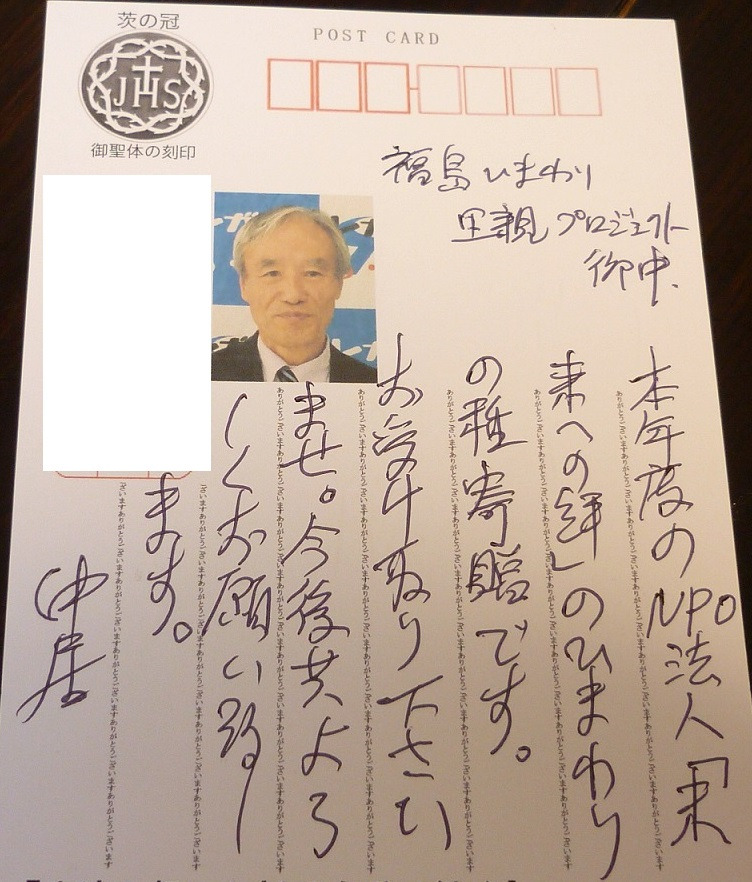 茨の冠
JHS
御聖体の刻印
POST CARD
福島ひまわり
里親プロジェクト
御中、
本年度のNPO法人「未
来への絆」のひまわり
の種寄贈です。
お受け取り下さい
ませ。今後共よろ
しくお願い致し
ます。
中居
ありがとうございますありがとうございますありがとうございますありがとうございますありがとうございます